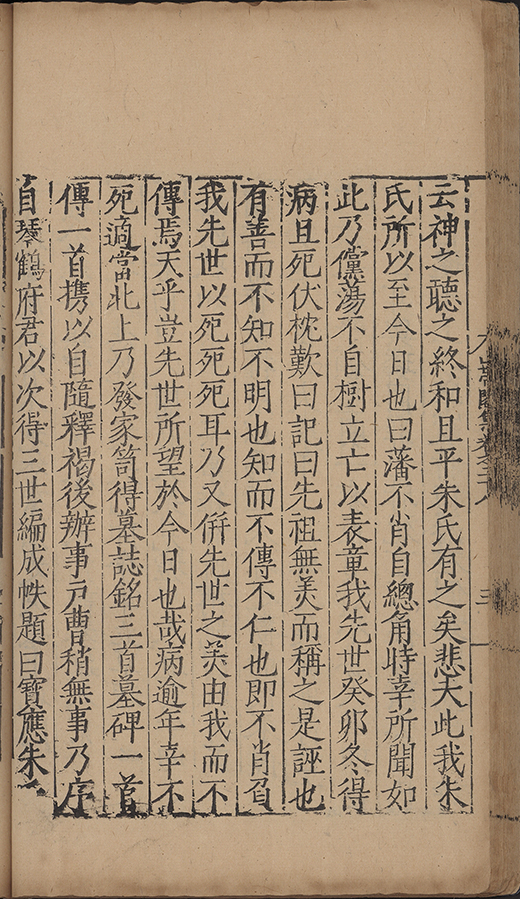 云神之聽之終和且平朱氏有之矣悲夫此我朱
氏所以至今日也曰藩不肖自總角時幸所聞如
此乃儻蕩不自樹立亡以表章我先世癸卯冬得
病且死伏枕歎曰記曰先祖無美而稱之是誣也
有善而不知不明也知而不傳不仁也即不肖負
我先世以死死死耳乃又併先世之美由我而不
傳焉天乎豈先世所望於今日也哉病逾年幸不
死適當北上乃發家笥得墓誌銘三首墓碑一首
傳一首携以自隨釋褐後辦事戶曹稍無事乃序
自琴鶴府君以次得三世編成帙題曰寶應朱